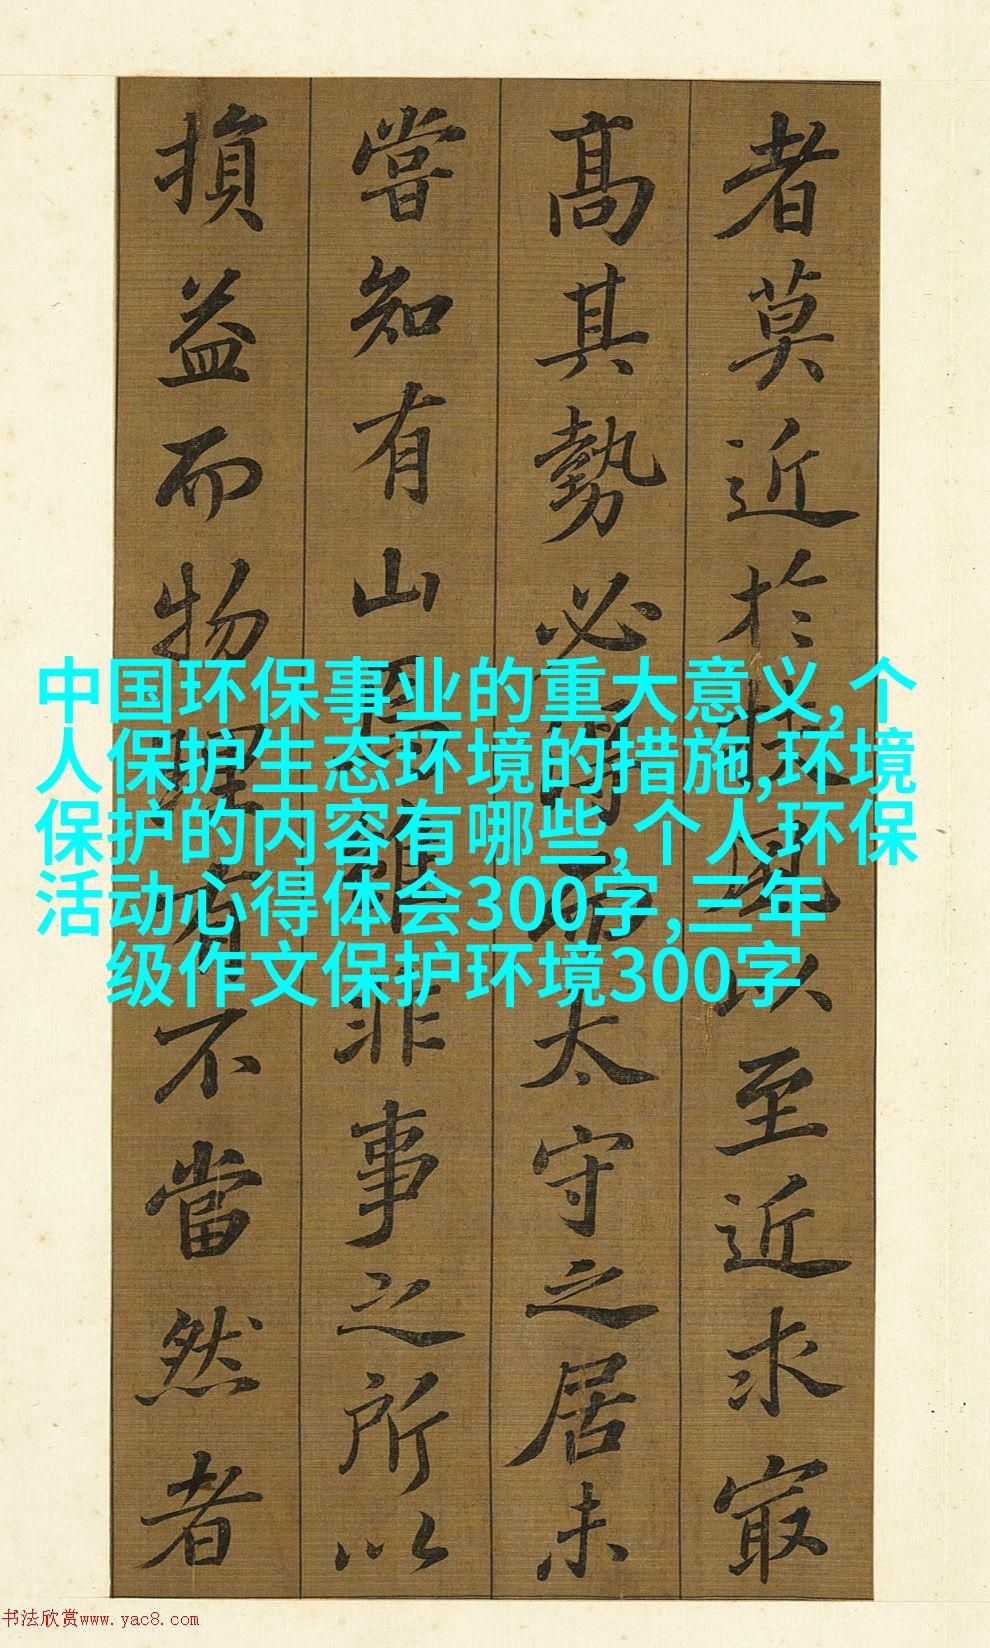 者莫近於扶風以至近求㝡
高其勢必得而太守之居未
嘗知有山焉雖非事之所以
損益而物理有不當然者
中国环保事业的重大意义,个
人保护生态环境的措施,环境
保护的内容有哪些,个人环保
活动心得体会300字,三年
级作文保护环境300字
书法欣赏www.yac8.com